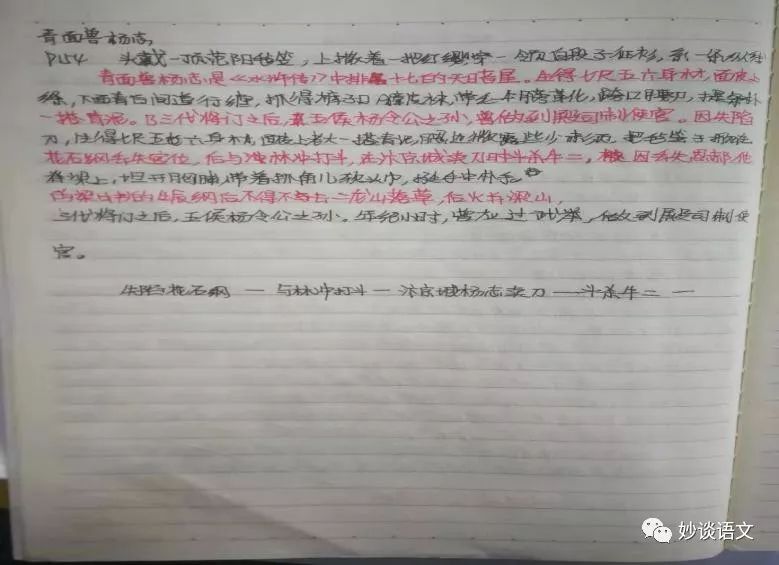 青面兽杨志
P154 头戴一顶范阳毡笠，上撒着一把红缨，穿一领白段子征衫，系一条
青面兽杨志是《水浒传》中排名十七的天日者星。生得七尺五六身材，面皮
绦，下面青白间道行缠，抓得裤子口，獐皮袜，带毛牛膀靴，跨口腰刀，提条朴
一搭青记。乃三代将门之后，杨令公之孙，曾做到殿司制使官。因失陷
刀，生得七尺五六身材，面皮上老大一搭青记，腮边微露些少赤须，把毡笠子掀在
花石纲丢失官位，后与林冲打斗，在汴京城卖刀时斗杀牛二，因丢失
脊梁上，坦开胸脯，带着抓角儿软头巾，挺手中朴刀
的生辰纲后不得不与去二龙山落草，后火并梁山，
三代将门之后，五侯杨令公之孙。年纪小时，曾应过武举，做到殿司制使
官。
失陷花石纲 — 与林冲打斗 — 汴京城杨志卖刀 — 斗杀牛二 —
妙谈语文